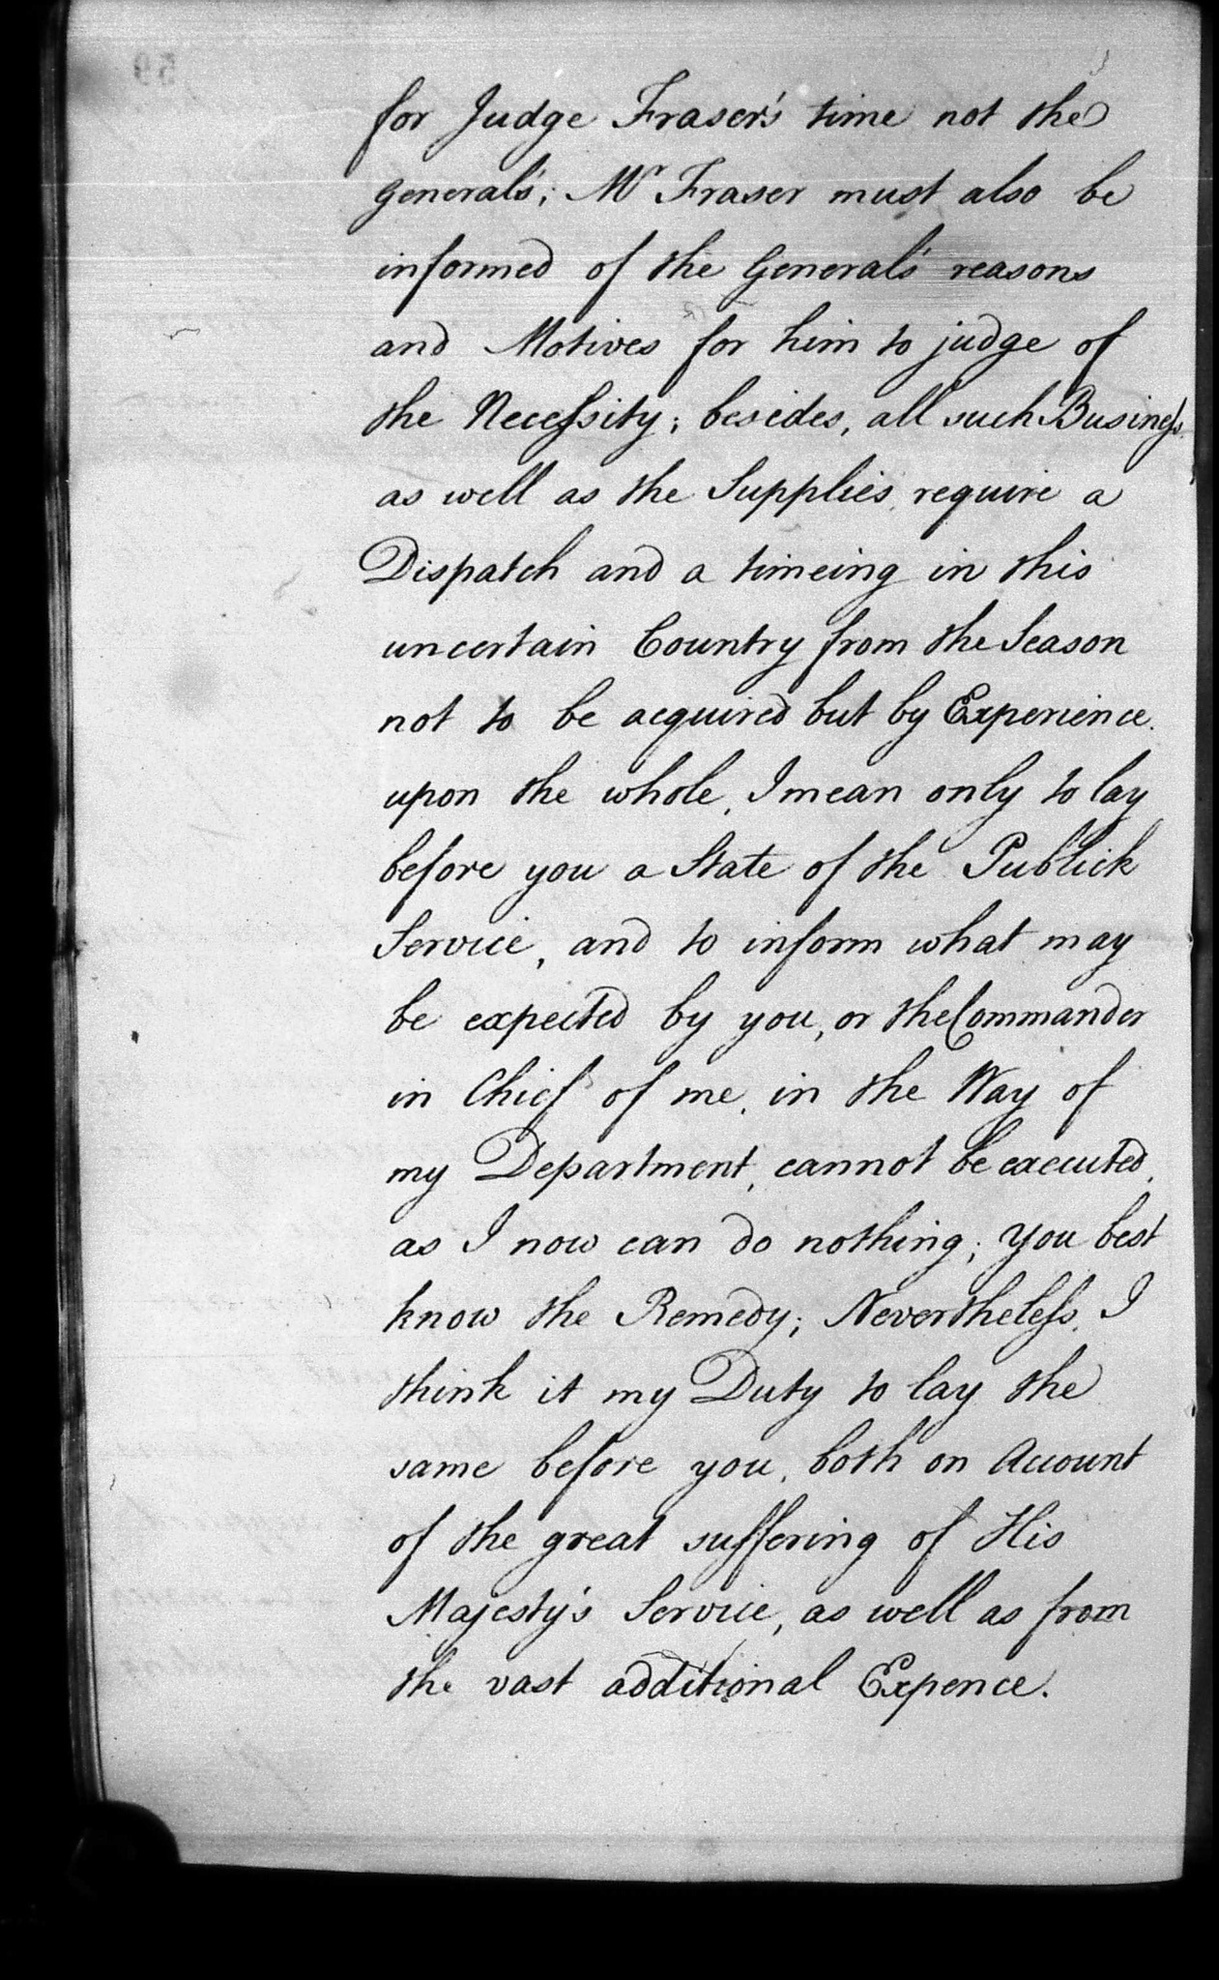 for Judge Fraser's time not the
General's; Mr Fraser must also be
informed of the General's reasons
and Motives for him to judge of
the Necessity; besides, all such Business
as well as the Supplies, require a
Dispatch and a timeing in this
uncertain Country from the Season
not to be acquired but by Experience.
upon the whole, I mean only to lay
before you a State of the Publick
Service, and to inform what may
be expected by you, or the Commander
in Chief of me, in the Way of
my Department, cannot be executed,
as I now can do nothing; you best
know the Remedy; Nevertheless, I
think it my Duty to lay the
same before you, both on Account
of the great suffering of His
Majesty's Service, as well as from
the vast additional Expence.